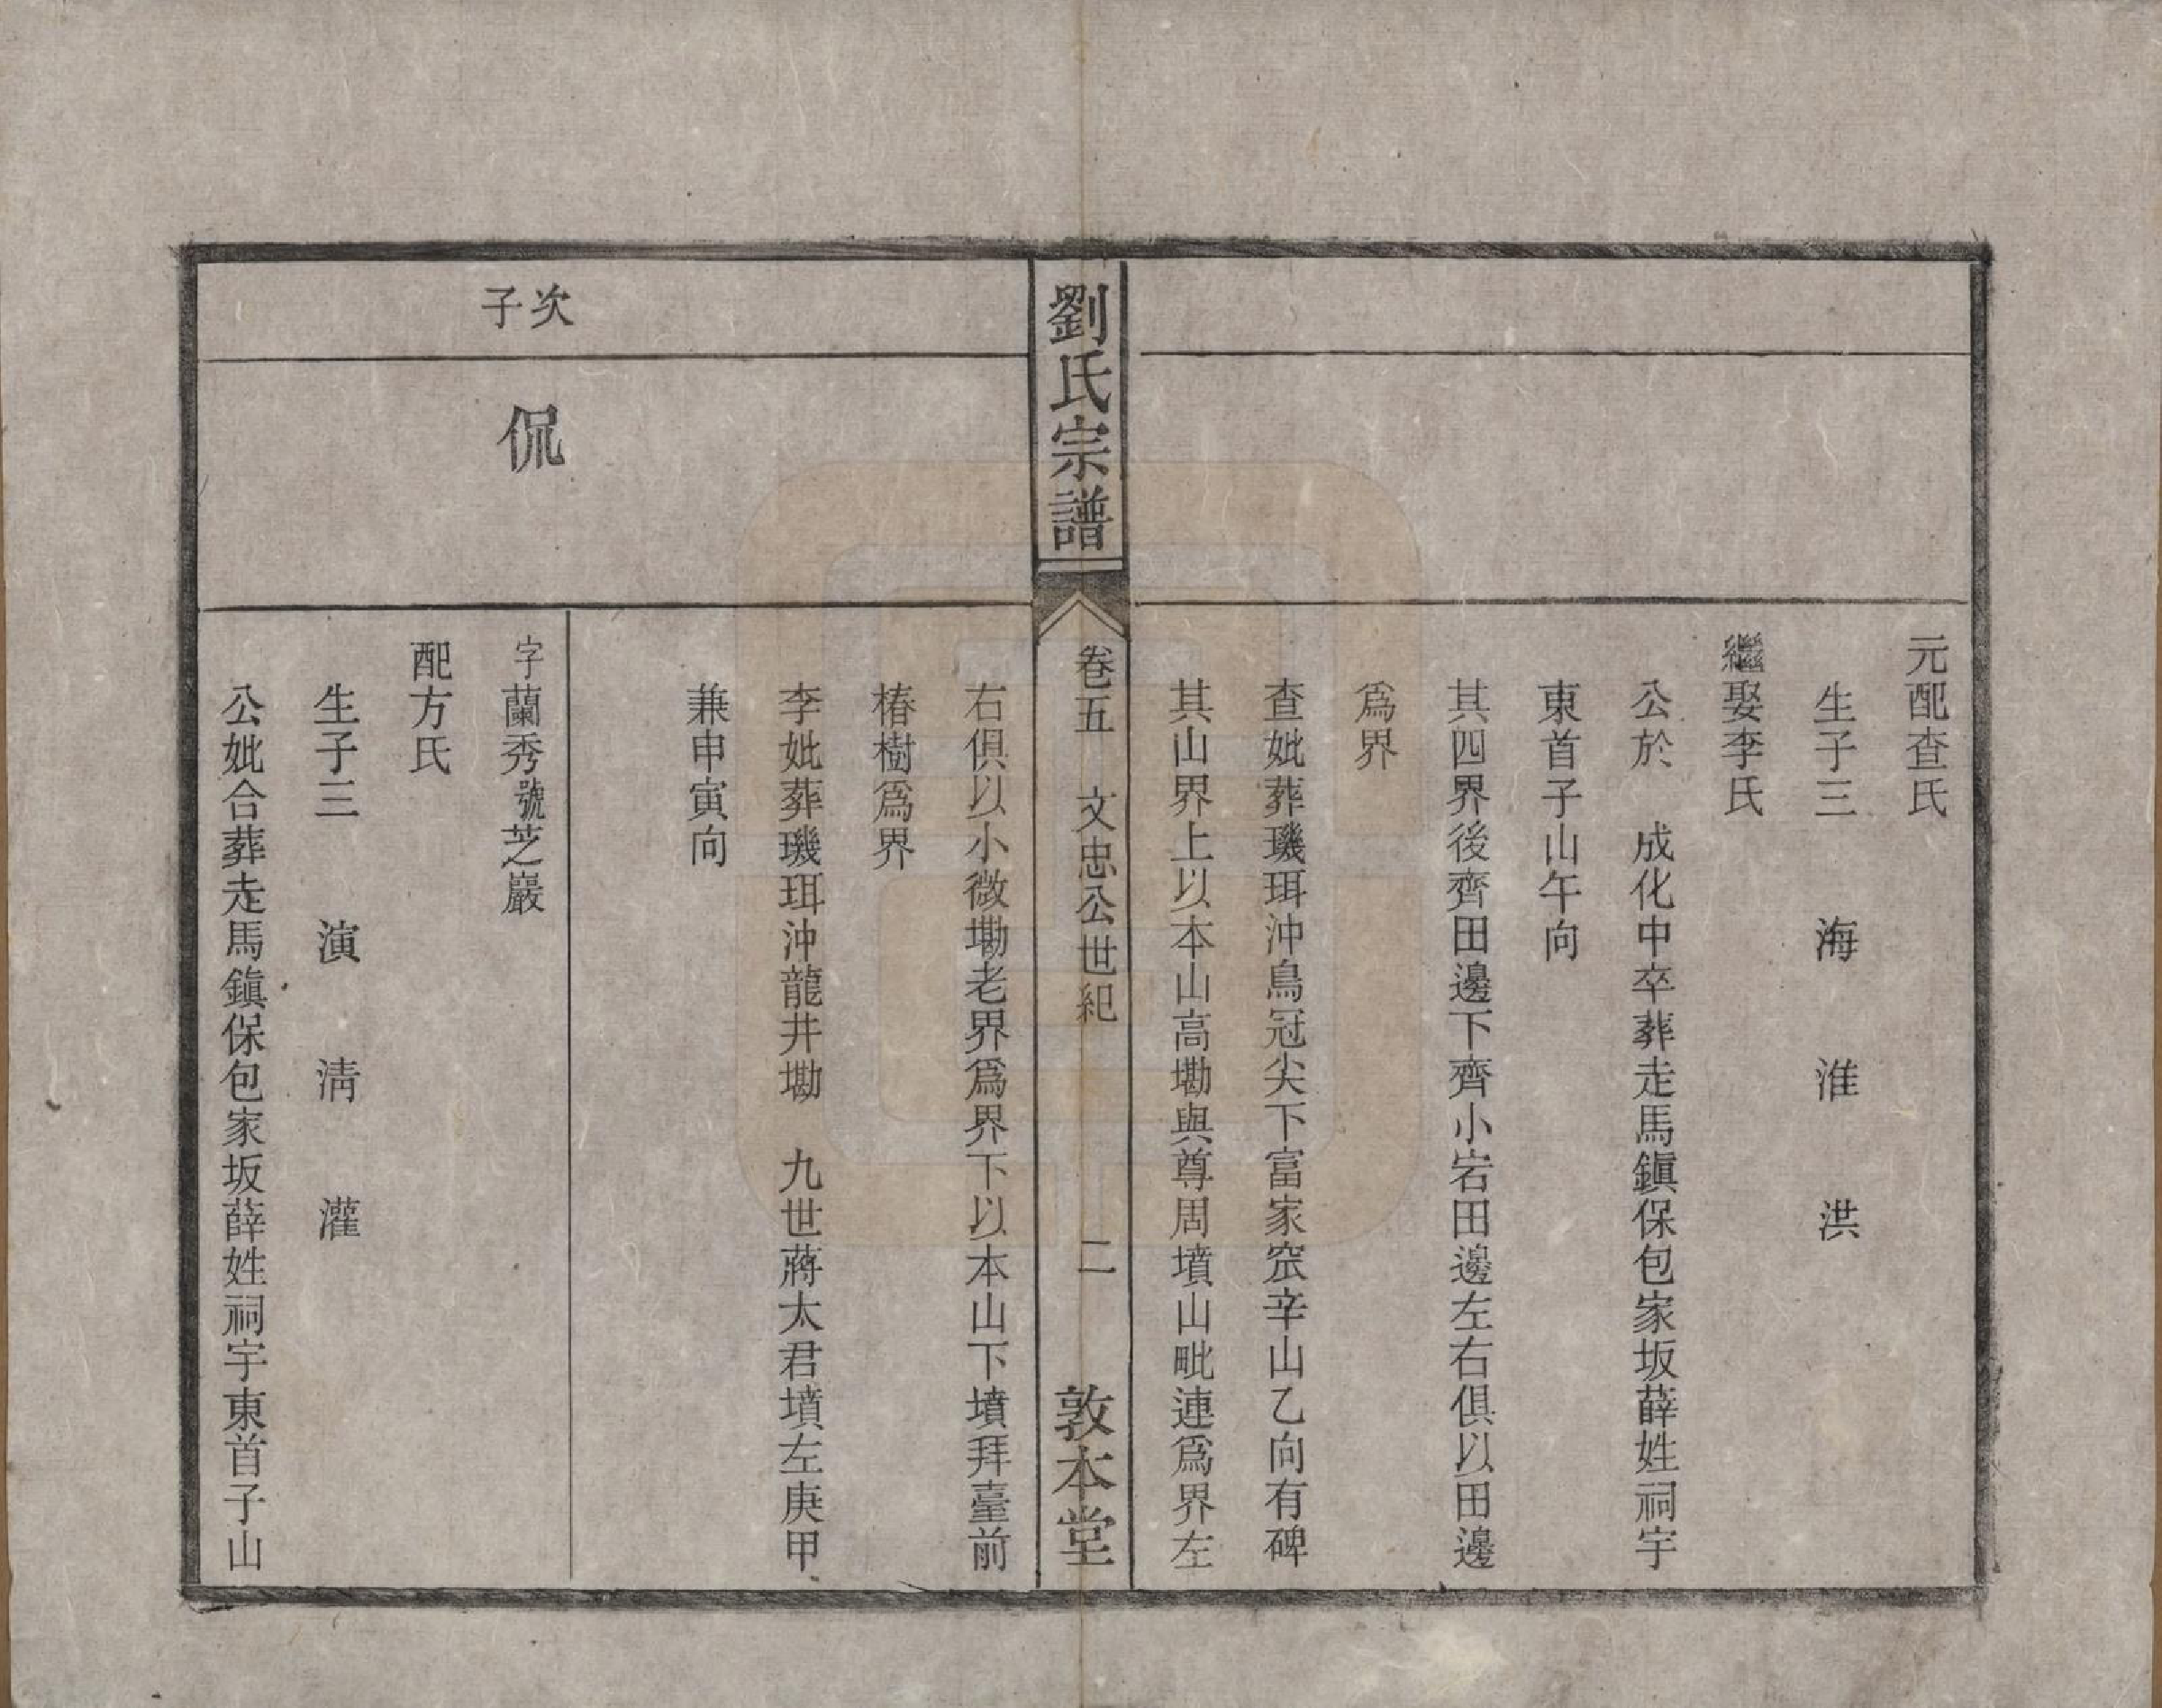 元配查氏
生子三　海　淮　洪
繼娶李氏
公於　成化中卒葬走馬鎭保包家坂薛姓祠宇
東首子山午向
其四界後齊田邊下齊小岩田邊左右俱以田邊
爲界
查妣葬璣珥沖鳥冠尖下富家窊辛山乙向有碑
其山界上以本山高墈與尊周墳山毗連爲界左
劉氏宗譜
卷五　文忠公世紀　二
敦本堂
右俱以小微墈老界爲界下以本山下墳拜臺前
椿樹爲界
李妣葬璣珥沖龍井墈　九世蔣太君墳左庚甲
兼申寅向
次子
侃
字蘭秀號芝巖
配方氏
生子三　演　淸　灌
公妣合葬走馬鎭保包家坂薛姓祠宇東首子山